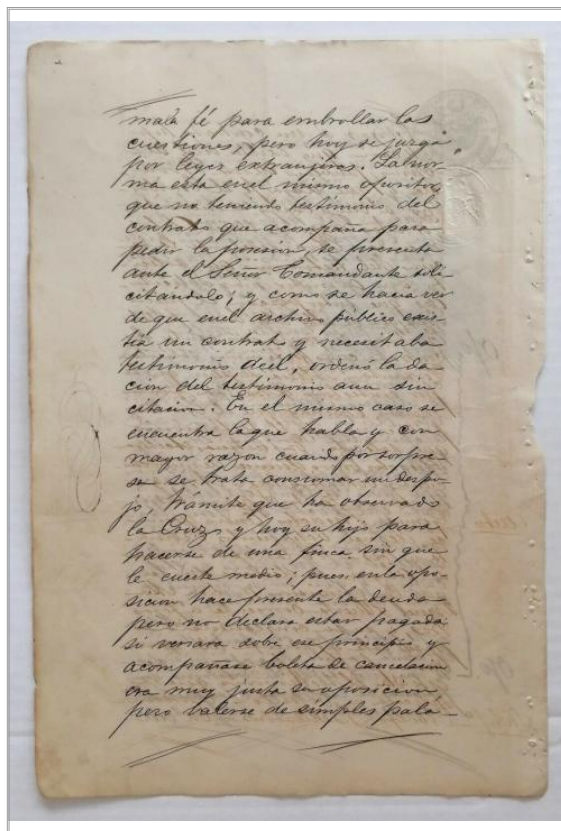 mala fé para embrollar las
cuestiones, pero hoy se juzga
por leyes extranjeras. La nor-
ma esta en el mismo opositor,
que no teniendo testimonio del
contrato que acompaña para
pedir la posesion, se presenta
ante el Señor Comandante soli-
citandolo; y como se hacia ver
de que en el archivo publico exis-
tia un contrato y necesitaba
testimonio de el, ordenó la da-
cion del testimonio aun sin
citacion. En el mismo caso se
encuentra la que habla y con
mayor razon cuando por sorpre-
sa se trata consumar un despo-
jo, trámite que ha observado
la Cruz y hoy su hijo para
hacerse de una finca sin que
le cueste medio; pues en la opo-
sicion hace presente la deuda
pero no declara estar pagada
si versara sobre ese principio y
acompañase boleta de cancelacion
era muy justa su oposicion,
pero valerse de simples pala-